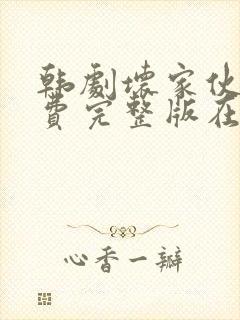 韩劇壞家伙
費完整版在
心香一瓣